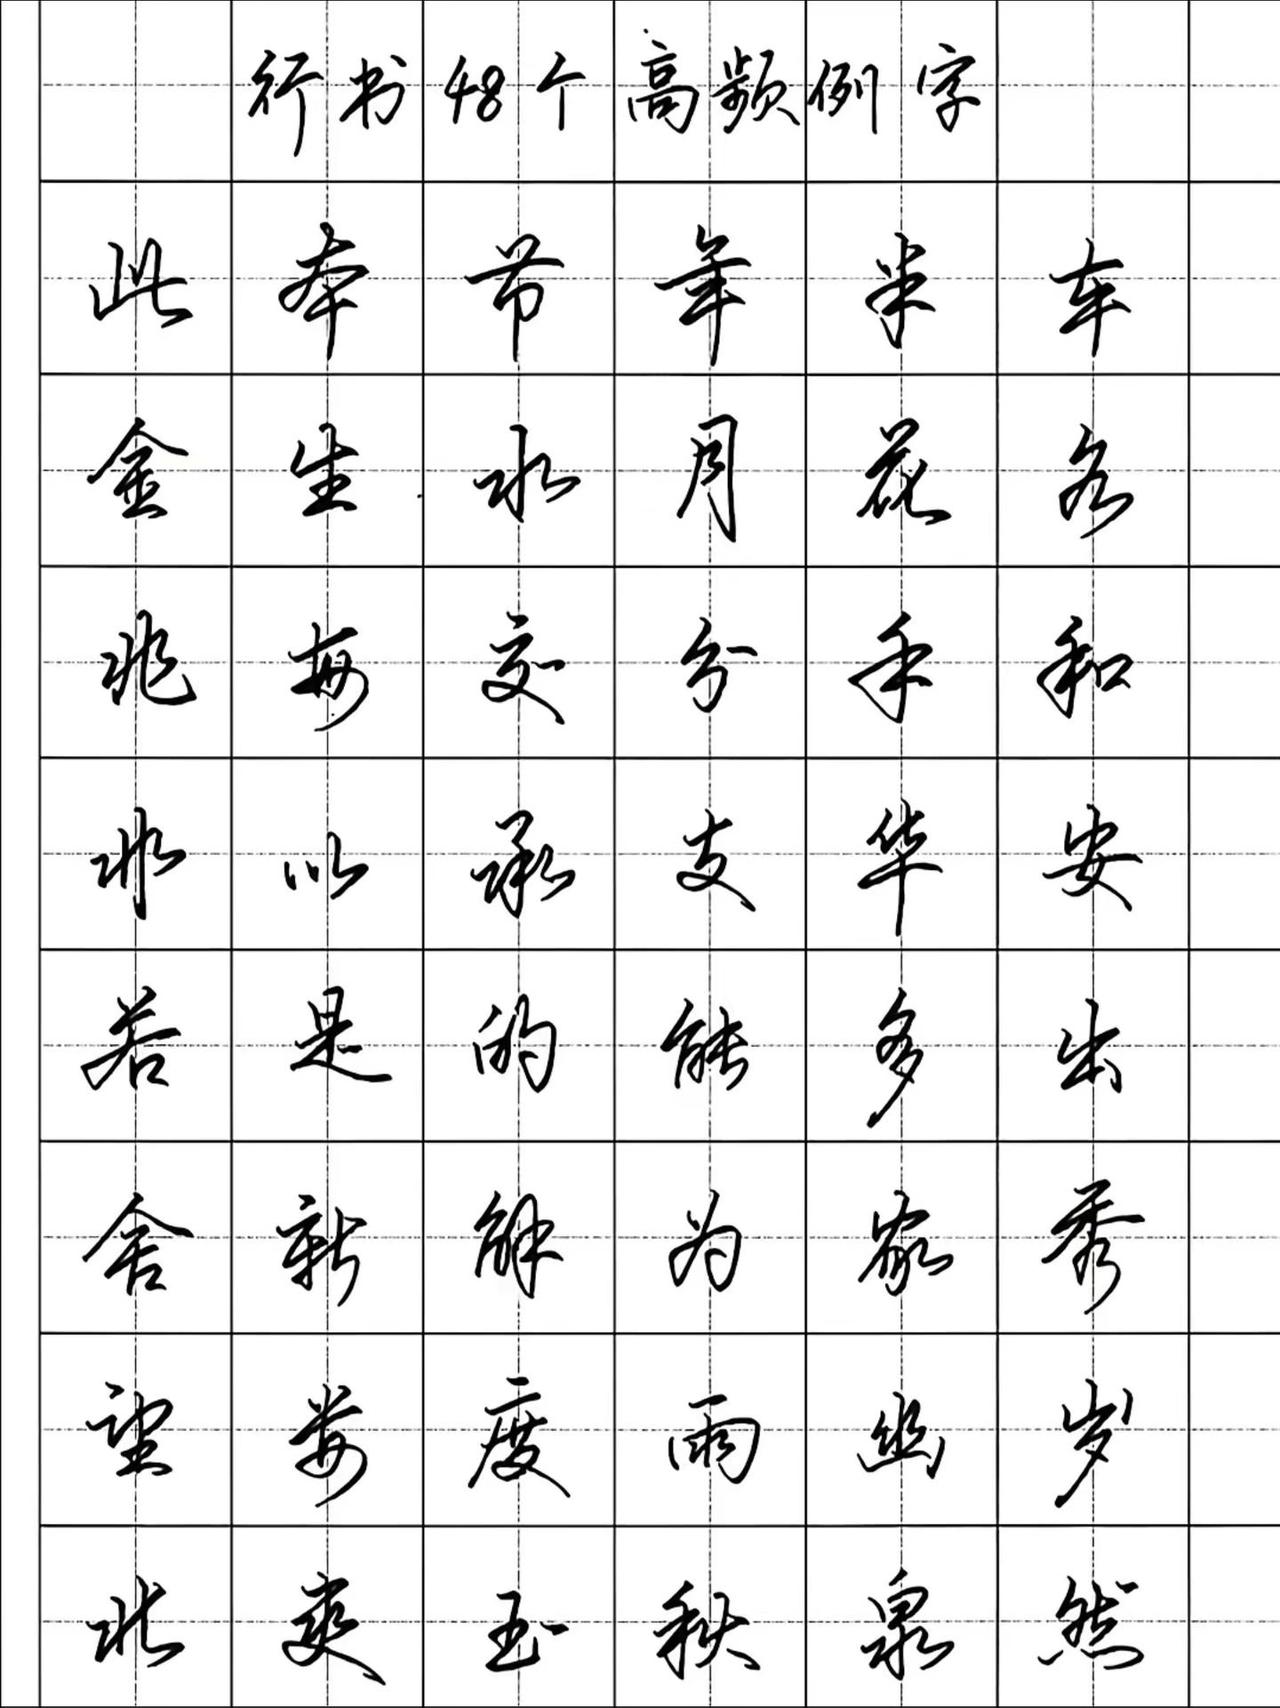 行书48个高频例字
此本节年半车
金生水月花
兆每交分手和
以承支华安
若是的能多出
舍新解为家秀
望度雨幽岁
北爽玉秋泉然